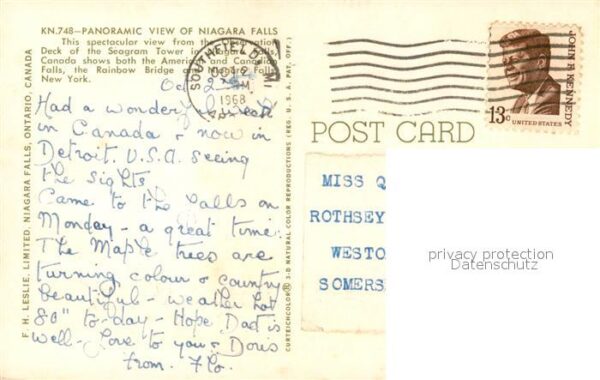 KN.748—PANORAMIC VIEW OF NIAGARA FALLS
This spectacular view from the Observation
Deck of the Seagram Tower in Niagara Falls,
Canada shows both the American and Canadian
Falls, the Rainbow Bridge and Niagara Falls,
New York.
Oct 2
Had a wonderful week
in Canada & now in
Detroit. U.S.A. seeing
the sights
Came to the Falls on
Monday - a great time.
The Maple trees are
turning colour & country
beautiful - weather hot
80° to-day - Hope Dad is
well - Love to you & Doris
from. Flo.
F. H. LESLIE, LIMITED, NIAGARA FALLS, ONTARIO, CANADA
CURTEICHCOLOR® 3-D NATURAL COLOR REPRODUCTIONS (REG. U.S.A. PAT. OFF.)
SOUTHFIELD
OCT 2
PM
1968
13c
UNITED STATES
JOHN F. KENNEDY
POST CARD
MISS
ROTHSEY
WESTO
SOMERS
privacy protection
Datenschutz